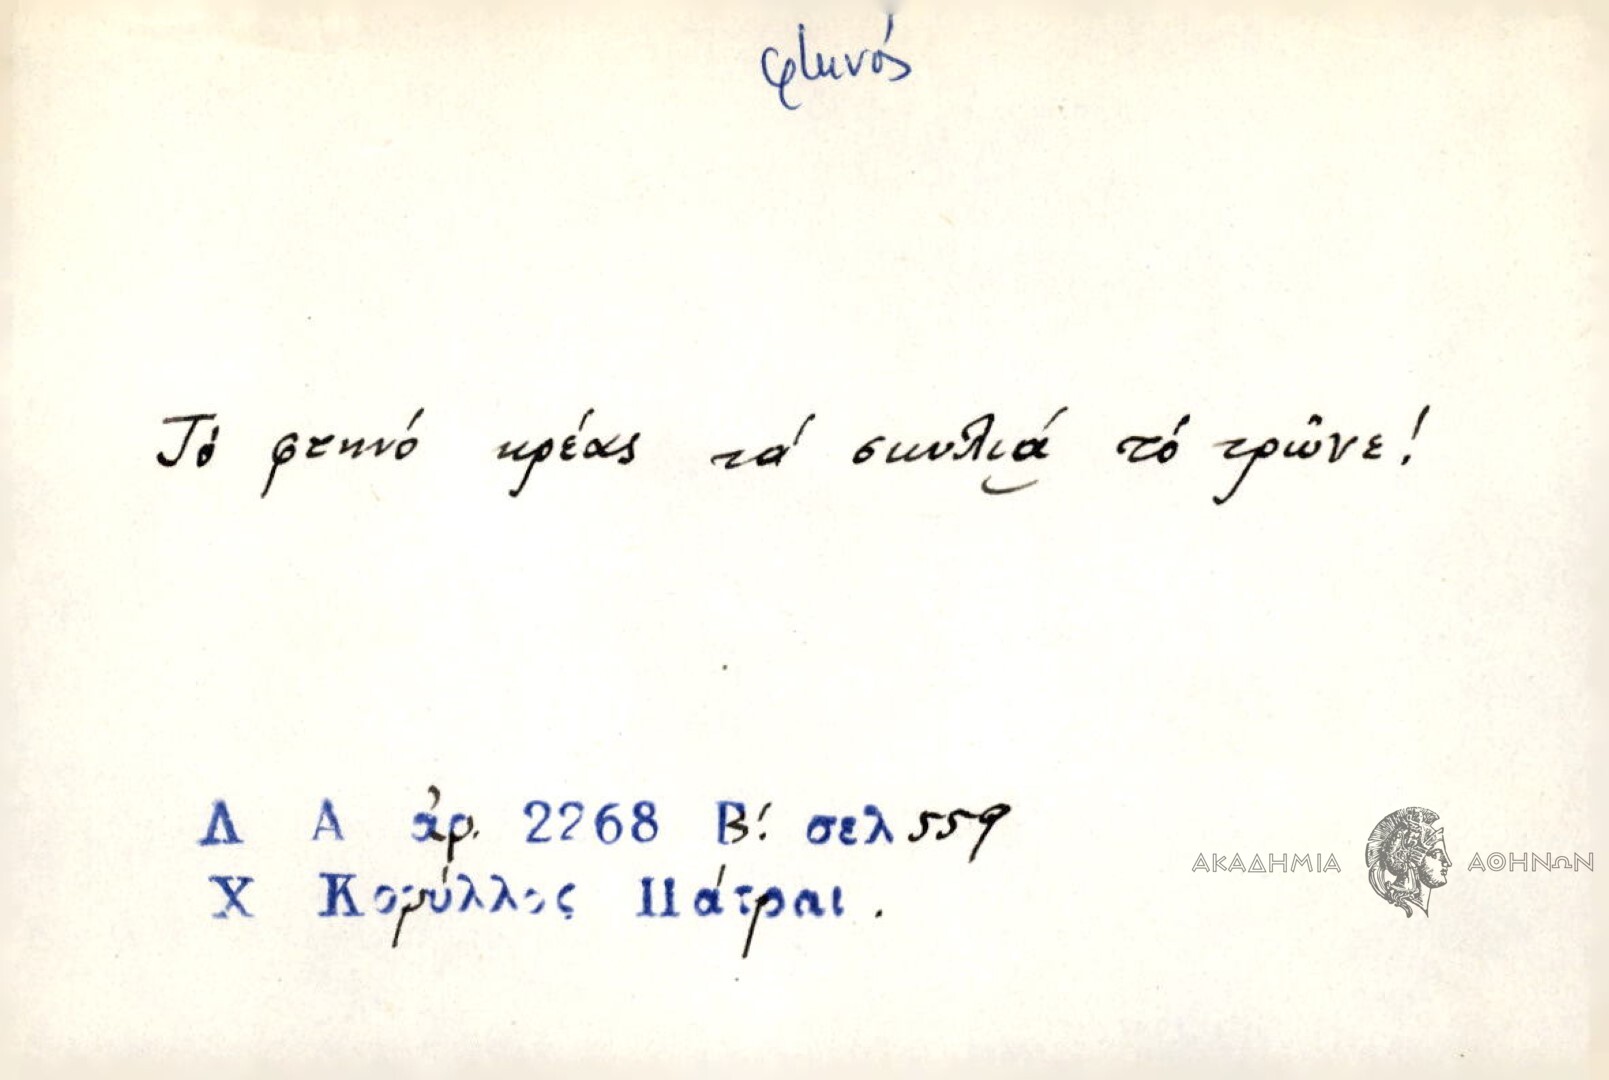 φτηνός
Τό φτηνό κρέας τά σκυλιά τό τρῶνε!
Λ Α ἀρ. 2268 Β! σελ 559
Χ Κορύλλος Πάτραι.
ΑΚΑΔΗΜΙΑ ΑΘΗΝΩΝ